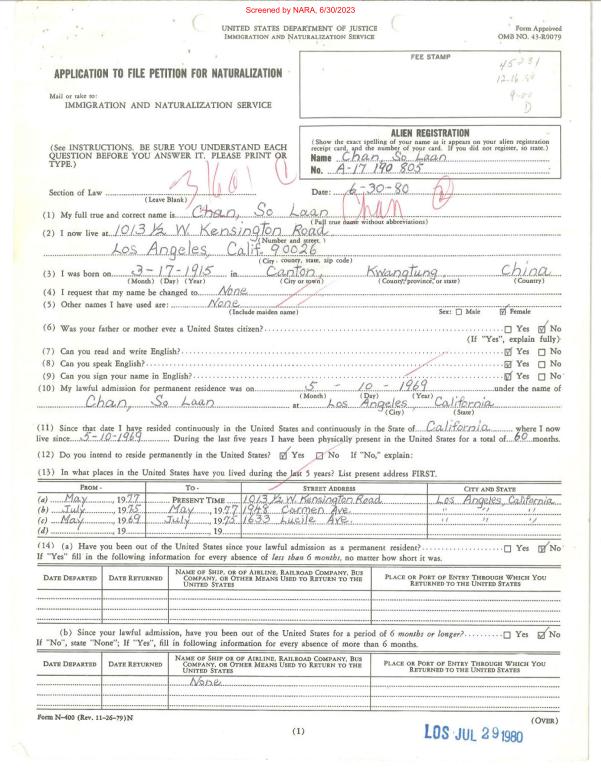 Screened by NARA, 6/30/2023
UNITED STATES DEPARTMENT OF JUSTICE
IMMIGRATION AND NATURALIZATION SERVICE
Form Approved
OMB NO. 43-R0079
FEE STAMP
12.16.80
9-00
D
APPLICATION TO FILE PETITION FOR NATURALIZATION
Mail or take to:
IMMIGRATION AND NATURALIZATION SERVICE
(See INSTRUCTIONS. BE SURE YOU UNDERSTAND EACH QUESTION BEFORE YOU ANSWER IT. PLEASE PRINT OR TYPE.)
ALIEN REGISTRATION
(Show the exact spelling of your name as it appears on your alien registration receipt card, and the number of your card. If you did not register, so state.)
Name Chan, So Laan
No. A-17 190 805
31601 (1)
Section of Law
(Leave Blank)
Date: 6-30-80
(2)
Chan
(1) My full true and correct name is Chan, So Laan
(Full true name without abbreviations)
(2) I now live at 1013 1/2 W. Kensington Road
(Number and street,)
Los Angeles, Calif. 90026
(City, county, state, zip code)
(3) I was born on 3-17-1915 in Canton, Kwangtung, China
(Month) (Day) (Year) (City or town) (County, province, or state) (Country)
(4) I request that my name be changed to None
(5) Other names I have used are: None
(Include maiden name)
Sex: ☐ Male ☑ Female
(6) Was your father or mother ever a United States citizen? ☐ Yes ☑ No
(If "Yes", explain fully)
(7) Can you read and write English? ☑ Yes ☐ No
(8) Can you speak English? ☑ Yes ☐ No
(9) Can you sign your name in English? ☑ Yes ☐ No
(10) My lawful admission for permanent residence was on 5 - 10 - 1969 under the name of
(Month) (Day) (Year)
Chan, So Laan at Los Angeles, California
(City) (State)
(11) Since that date I have resided continuously in the United States and continuously in the State of California where I now
live since 5-10-1969. During the last five years I have been physically present in the United States for a total of 60 months.
(12) Do you intend to reside permanently in the United States? ☑ Yes ☐ No If "No," explain:
(13) In what places in the United States have you lived during the last 5 years? List present address FIRST.
FROM - TO - STREET ADDRESS CITY AND STATE
(a) May, 1977 PRESENT TIME 1013 1/2 W. Kensington Road Los Angeles, California
(b) July, 1975 May, 1977 1948 Carmen Ave. " " "
(c) May, 1969 July, 1975 1633 Lucile Ave. " " "
(d) , 19 , 19
(14) (a) Have you been out of the United States since your lawful admission as a permanent resident? ☐ Yes ☑ No
If "Yes" fill in the following information for every absence of less than 6 months, no matter how short it was.
DATE DEPARTED DATE RETURNED NAME OF SHIP, OR OF AIRLINE, RAILROAD COMPANY, BUS COMPANY, OR OTHER MEANS USED TO RETURN TO THE UNITED STATES PLACE OR PORT OF ENTRY THROUGH WHICH YOU RETURNED TO THE UNITED STATES
(b) Since your lawful admission, have you been out of the United States for a period of 6 months or longer? ☐ Yes ☑ No
If "No", state "None"; If "Yes", fill in following information for every absence of more than 6 months.
DATE DEPARTED DATE RETURNED NAME OF SHIP, OR OF AIRLINE, RAILROAD COMPANY, BUS COMPANY, OR OTHER MEANS USED TO RETURN TO THE UNITED STATES PLACE OR PORT OF ENTRY THROUGH WHICH YOU RETURNED TO THE UNITED STATES
None
Form N-400 (Rev. 11-26-79)N
(1)
(OVER)
LOS JUL 29 1980